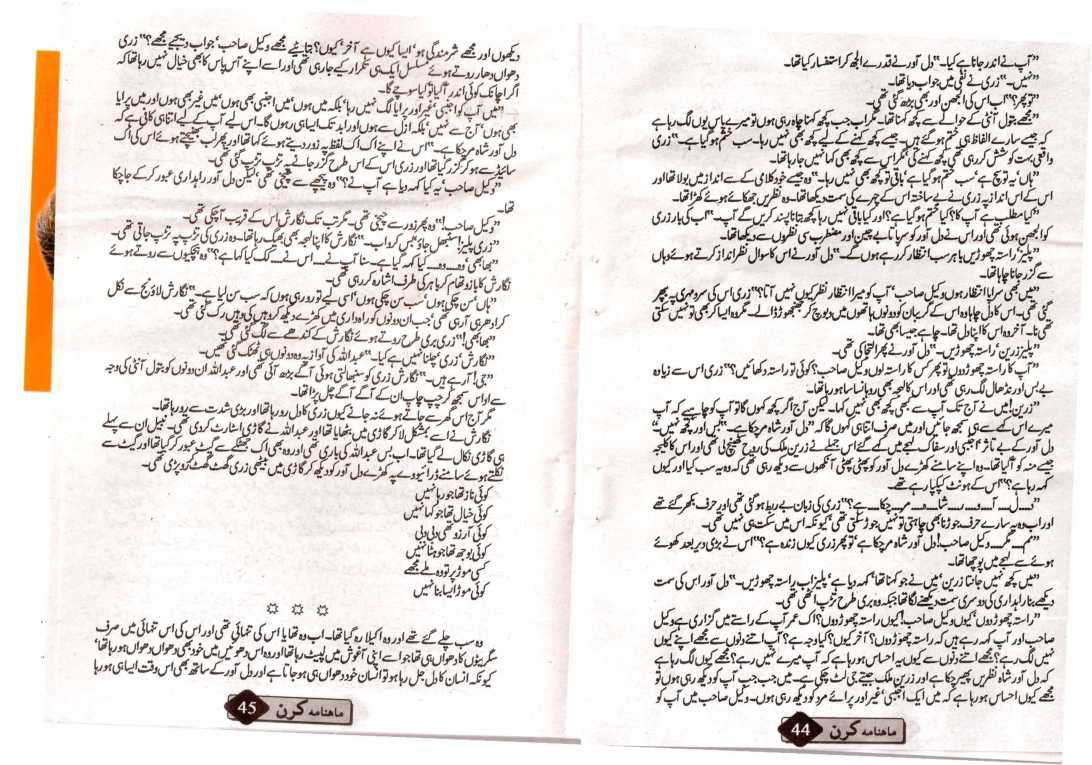 ”آپ نے اندر جانا ہے کیا۔“ دل آور نے قدرے الجھ کر استفسار کیا تھا۔
”نہیں۔“ زری نے نفی میں جواب دیا تھا۔
”تو پھر؟“ اب اس کی الجھن اور بھی بڑھ گئی تھی۔
”مجھے بتول آنٹی کے حوالے سے کچھ کہنا تھا۔ مگر اب جب کچھ کہنا چاہ رہی ہوں تو میرے پاس یوں لگ رہا ہے
کہ جیسے سارے الفاظ ہی ختم ہو گئے ہیں۔ جیسے کچھ کہنے کے لیے کچھ بھی نہیں رہا۔ سب ختم ہو گیا ہے۔“ زری
واقعی بہت کوشش کر رہی تھی کچھ کہنے کی، مگر اس سے کچھ بھی کہا نہیں جا رہا تھا۔
”ہاں! یہ تو سچ ہے، سب ختم ہو گیا ہے، باقی تو کچھ بھی نہیں رہا۔“ وہ جیسے خود کلامی کے سے انداز میں بولا تھا اور
اس کے اس انداز پہ زری نے بے ساختہ اس کے چہرے کی سمت دیکھا تھا۔ وہ نظریں جھکائے ہوئے کھڑا تھا۔
”کیا مطلب ہے آپ کا؟ کیا ختم ہو گیا ہے؟ اور کیا باقی نہیں رہا کچھ بتانا پسند کریں گے آپ۔“ اب کی بار زری
کو الجھن ہوئی تھی اور اس نے دل آور کو سرتاپا بے چین اور مضطرب سی نظروں سے دیکھا تھا۔
”پلیز! راستہ چھوڑیں باہر سب انتظار کر رہے ہوں گے۔“ دل آور نے اس کا سوال نظر انداز کرتے ہوئے وہاں
سے گزر جانا چاہا تھا۔
”میں بھی سراپا انتظار ہوں وکیل صاحب! آپ کو میرا انتظار نظر کیوں نہیں آتا؟“ زری اس کی سرد مہری پہ بپھر
گئی تھی۔ اس کا دل چاہا وہ اس کے گریبان کو دونوں ہاتھوں میں دبوچ کر جھنجھوڑ ڈالے۔ مگر وہ ایسا کر بھی تو نہیں سکتی
تھی نا۔ آخر وہ اس کا اپنا دل تھا۔ چاہے جیسا بھی تھا۔
”پلیز زرین! راستہ چھوڑیں۔“ دل آور نے پھر التجا کی تھی۔
”آپ کا راستہ چھوڑ دوں تو پھر کس کا راستہ لوں وکیل صاحب؟ کوئی تو راستہ دکھائیں؟“ زری اس سے زیادہ
بے بس اور نڈھال لگ رہی تھی اور اس کا لہجہ بھی روہانسا سا ہو رہا تھا۔
”زرین! میں نے آج تک آپ سے کبھی کچھ بھی نہیں کہا۔ لیکن آج اگر کچھ کہوں گا تو آپ کو چاہیے کہ آپ
میرے اس کہے سے ہی سمجھ جائیں اور میں صرف اتنا ہی کہوں گا کہ ”دل آور شاہ مر چکا ہے۔“ بس اور کچھ نہیں۔“
دل آور کے بے تاثر، اجنبی اور سفاک لہجے میں کہے گئے اس جملے نے زرین ملک کی روح کھینچ لی تھی اور اس کا کلیجہ
جیسے منہ کو آ گیا تھا۔ وہ اپنے سامنے کھڑے دل آور کو پھٹی پھٹی آنکھوں سے دیکھ رہی تھی کہ وہ یہ سب کیا اور کیوں
کہہ رہا ہے؟“ اس کے ہونٹ کپکپا رہے تھے۔
”د۔۔۔ل۔۔۔آ۔۔۔و۔۔۔ر۔۔۔شا۔۔۔ہ۔۔۔مر۔۔۔چکا۔۔۔ہے؟“ زری کی زبان بے ربط ہو گئی تھی اور حرف بکھر گئے تھے
اور اب وہ یہ سارے حرف جوڑنا بھی چاہتی تو نہیں جوڑ سکتی تھی، کیونکہ اس میں سکت ہی نہیں تھی۔
”مم۔۔۔مگر۔۔۔ وکیل صاحب! دل آور شاہ مر چکا ہے، تو پھر زری کیوں زندہ ہے؟“ اس نے بڑی دیر بعد کھوئے
ہوئے سے لہجے میں پوچھا تھا۔
”میں کچھ نہیں جانتا زرین! میں نے جو کہنا تھا، کہہ دیا ہے، پلیز اب راستہ چھوڑیں۔“ دل آور اس کی سمت
دیکھے بنا راہداری کی دوسری سمت دیکھنے لگا تھا جبکہ وہ بری طرح تڑپ اٹھی تھی۔
”راستہ چھوڑ دوں، کیوں وکیل صاحب! کیوں راستہ چھوڑ دوں؟ اک عمر آپ کے راستے میں گزاری ہے وکیل
صاحب اور آپ کہہ رہے ہیں کہ راستہ چھوڑ دوں؟ آخر کیوں؟ کیا وجہ ہے؟ آپ اتنے دنوں سے مجھے اپنے کیوں
نہیں لگ رہے؟ مجھے اتنے دنوں سے کیوں یہ احساس ہو رہا ہے کہ آپ میرے نہیں رہے؟ مجھے کیوں لگ رہا ہے
کہ دل آور شاہ نظریں پھیر چکا ہے اور زرین ملک جیتے جی لٹ چکی ہے۔ میں جب جب آپ کو دیکھ رہی ہوں تو
مجھے کیوں احساس ہو رہا ہے کہ میں ایک اجنبی، غیر اور پرائے مرد کو دیکھ رہی ہوں۔ وکیل صاحب میں آپ کو
ماہنامہ کرن 44
دیکھوں اور مجھے شرمندگی ہو، ایسا کیوں ہے آخر، کیوں؟ بتایئے مجھے وکیل صاحب، جواب دیجیے مجھے؟“ زری
دھواں دھار روتے ہوئے مسلسل ایک ہی تکرار کیے جا رہی تھی اور اسے اپنے آس پاس کا بھی خیال نہیں رہا تھا کہ
اگر اچانک کوئی اندر آ گیا تو کیا سوچے گا۔
”میں آپ کو اجنبی، غیر اور پرایا لگ نہیں رہا، بلکہ میں ہوں، میں اجنبی بھی ہوں، میں غیر بھی ہوں اور میں پرایا
بھی ہوں، آج سے نہیں، بلکہ ازل سے ہوں اور ابد تک ایسا ہی رہوں گا۔ اس لیے آپ کے لیے اتنا ہی کافی ہے کہ
دل آور شاہ مر چکا ہے۔“ اس نے اپنے اک اک لفظ پہ زور دیتے ہوئے کہا تھا اور پھر لب بھینچتے ہوئے اس کی اک
سائیڈ سے ہو کر گزر گیا تھا اور زری اس کے اس طرح گزر جانے پہ تڑپ تڑپ گئی تھی۔
”وکیل صاحب! یہ کیا کہہ دیا ہے آپ نے؟“ وہ پیچھے سے چیخی تھی، لیکن دل آور راہداری عبور کر کے جا چکا
تھا۔
”وکیل صاحب!“ وہ پھر زور سے چیخی تھی۔ مگر تب تک نگارش اس کے قریب آ چکی تھی۔
”زری پلیز! سنبھل جاؤ، بس کرو اب۔“ نگارش کا اپنا لہجہ بھی بھیگ رہا تھا۔ وہ زری کی تڑپ پہ تڑپ جاتی تھی۔
”بھابھی! وہ۔۔۔وہ۔۔۔ کیا کہہ گیا ہے۔ سنا آپ نے۔۔۔ اس نے۔۔۔ کک کیا کہا ہے؟“ وہ ہچکیوں سے روتے ہوئے
نگارش کا بازو تھام کر باہر کی طرف اشارہ کر رہی تھی۔
”ہاں! سن چکی ہوں، سب سن چکی ہوں، اسی لیے تو رو رہی ہوں کہ سب سن لیا ہے۔“ نگارش لاؤنج سے نکل
کر ادھر ہی آ رہی تھی، جب ان دونوں کو راہداری میں کھڑے دیکھ کر وہیں کی وہیں رک گئی تھی۔
”بھابھی!“ زری بری طرح روتے ہوئے نگارش کے کندھے سے لگ گئی تھی۔
”نگارش، زری! چلنا نہیں ہے کیا۔“ عبداللہ کی آواز پہ وہ دونوں ہی ٹھٹک گئی تھیں۔
”جی! آ رہے ہیں۔“ نگارش زری کو سنبھالتی ہوئی آگے بڑھ آئی تھی اور عبداللہ ان دونوں کو بتول آنٹی کی وجہ
سے اداس سمجھ کر چپ چاپ ان کے آگے آگے چل پڑا تھا۔
مگر آج اس گھر سے جاتے ہوئے نہ جانے کیوں زری کا دل رو رہا تھا اور بڑی شدت سے رو رہا تھا۔
نگارش نے اسے بمشکل لا کر گاڑی میں بٹھایا تھا اور عبداللہ نے گاڑی اسٹارٹ کر دی تھی۔ نبیل ان سے پہلے
ہی گاڑی نکال لے گیا تھا۔ اب بس عبداللہ کی باری تھی اور وہ بھی اک جھٹکے سے گیٹ عبور کر گیا تھا اور گیٹ سے
نکلتے ہوئے سامنے ڈرائیو وے پہ کھڑے دل آور کو دیکھ کر گاڑی میں بیٹھی زری گھٹ گھٹ کر رو پڑی تھی۔
کوئی ناز تھا جو رہا نہیں
کوئی خیال تھا جو کہا نہیں
کوئی آرزو تھی دبی دبی
کوئی بوجھ تھا جو ہٹا نہیں
کسی موڑ پر تو وہ ملے مجھے
کوئی موڑ ایسا بنا نہیں
☼ ☼ ☼
وہ سب چلے گئے تھے اور وہ اکیلا رہ گیا تھا۔ اب وہ تھا یا اس کی تنہائی تھی اور اس کی اس تنہائی میں صرف
سگریٹوں کا دھواں ہی تھا جو اسے اپنی آغوش میں لپیٹ رہا تھا اور وہ اس دھوئیں میں خود بھی دھواں دھواں ہو رہا تھا،
کیونکہ انسان کا دل جل رہا ہو تو انسان خود دھواں ہی ہو جاتا ہے اور دل آور کے ساتھ بھی اس وقت ایسا ہی ہو رہا
ماہنامہ کرن 45